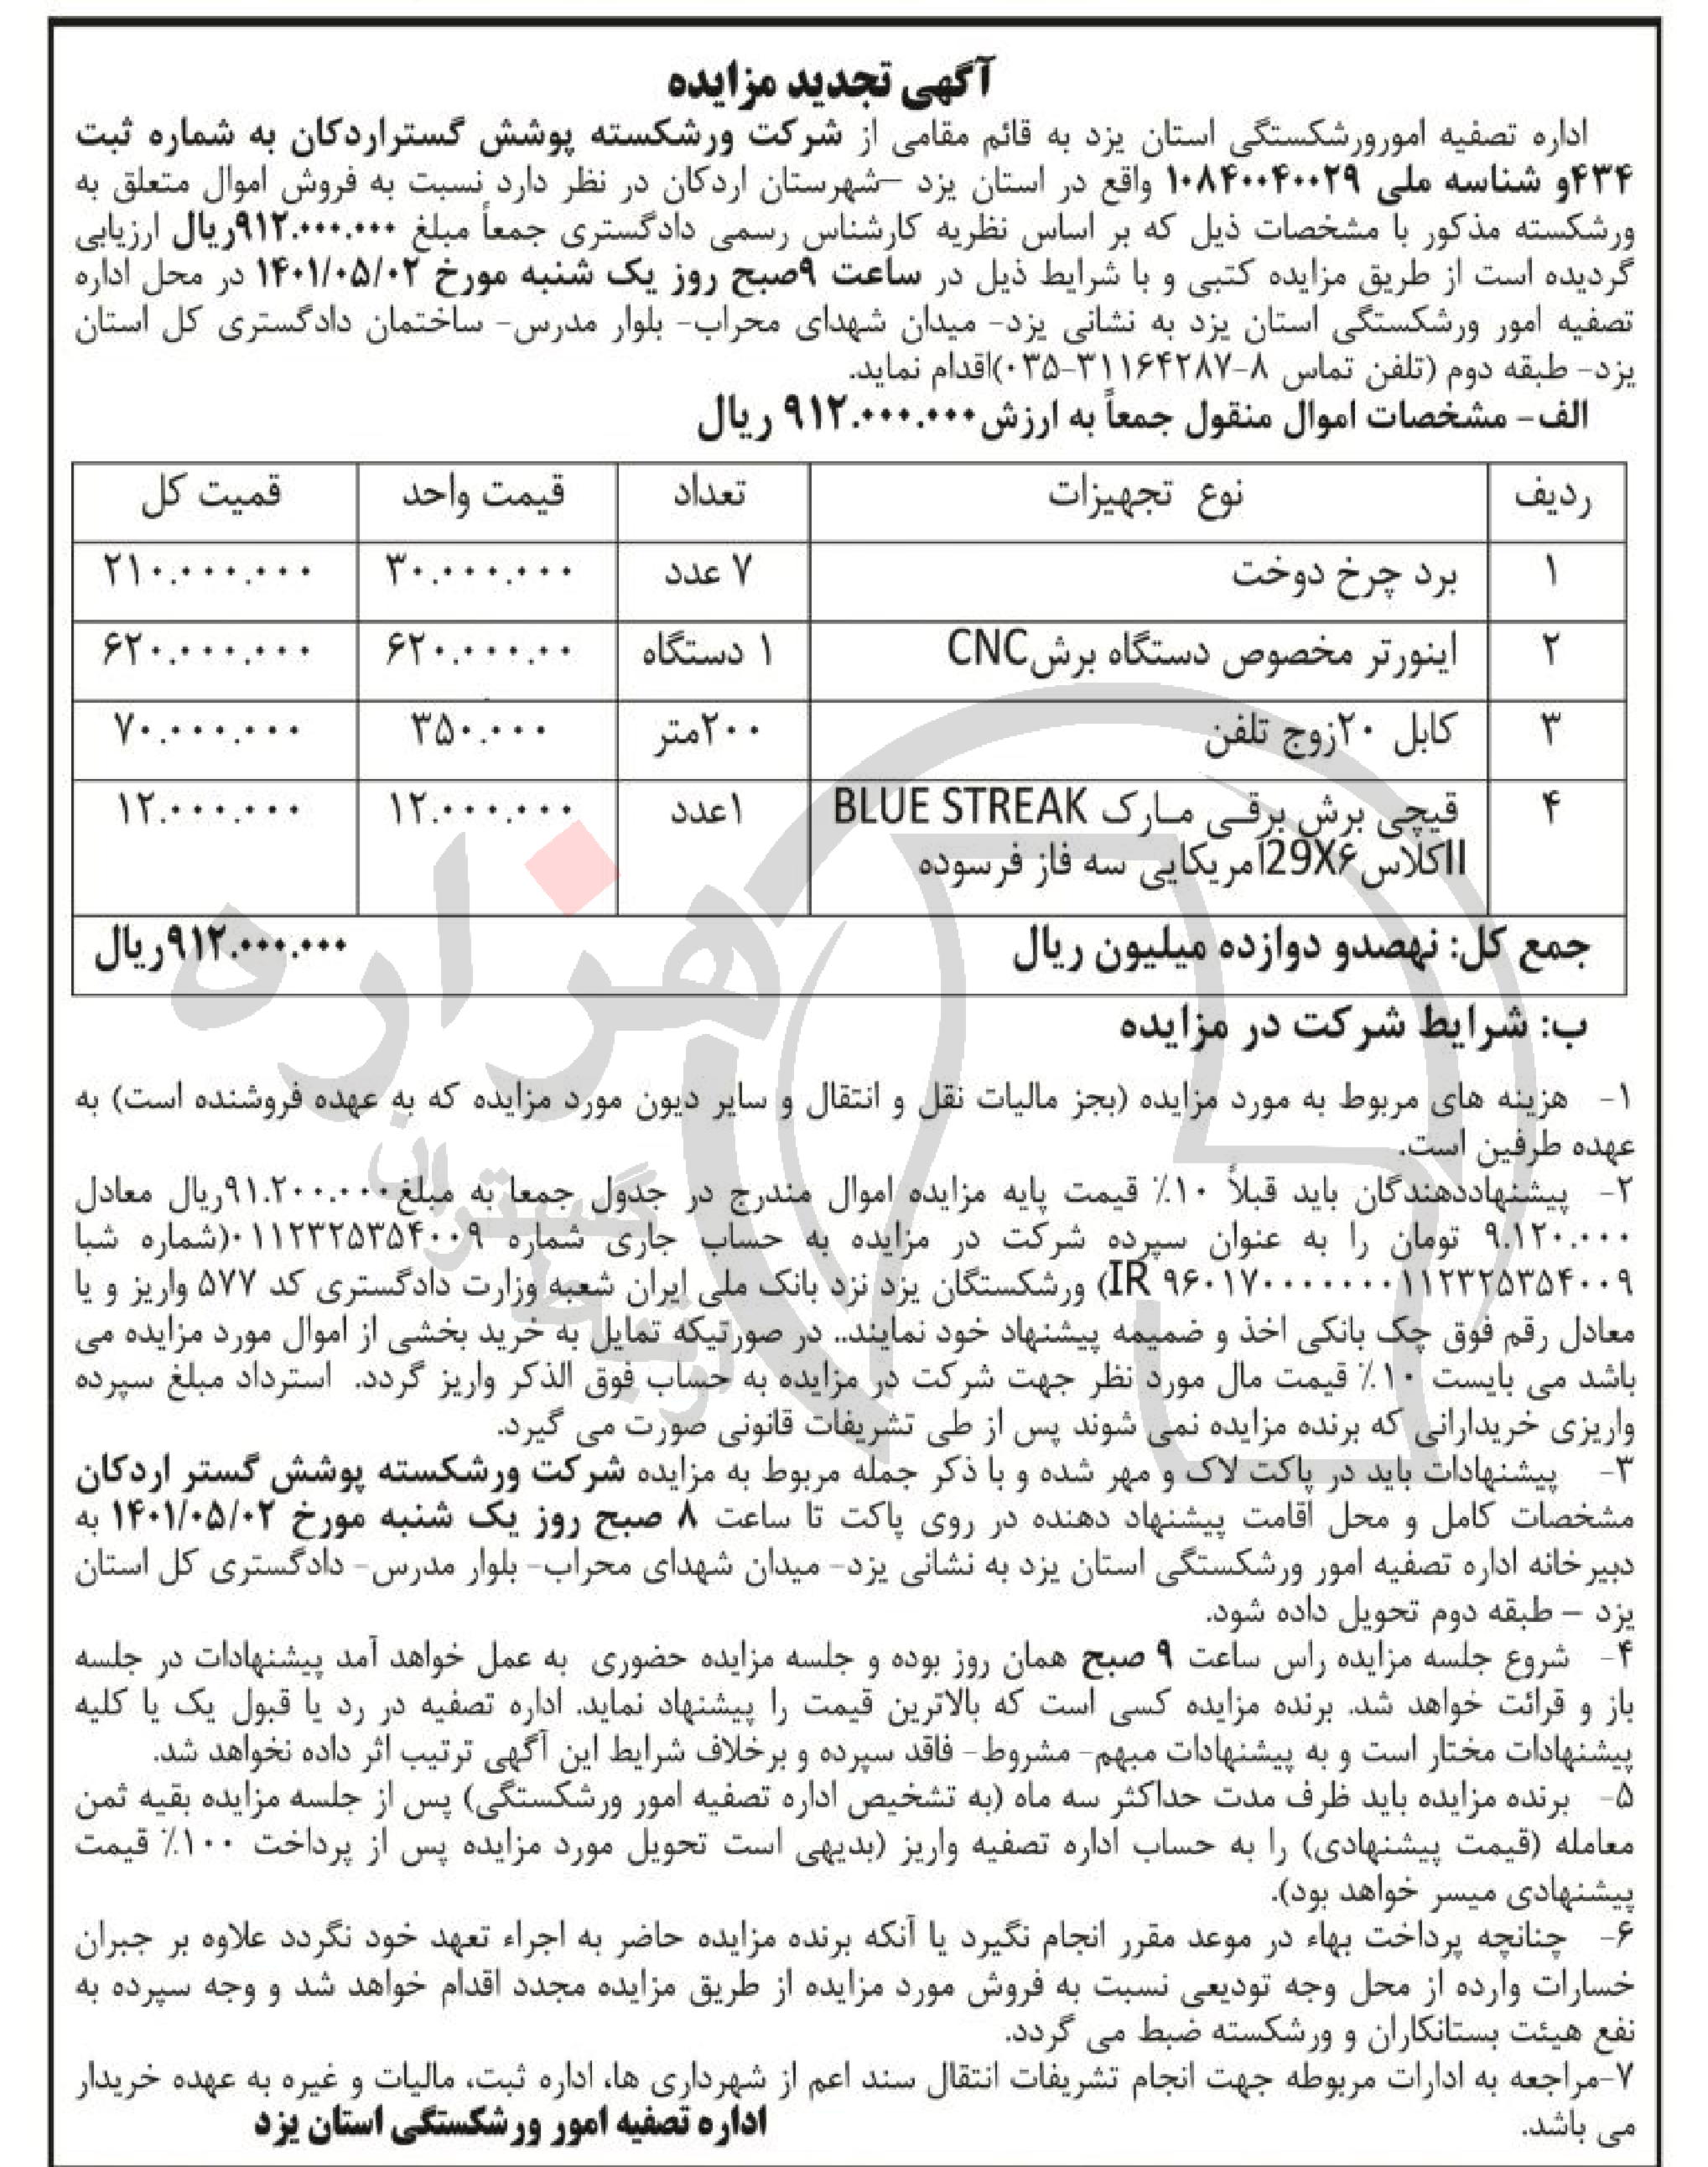 آگهی تجدید مزایده
اداره تصفیه امورورشکستگی استان یزد به قائم مقامی از شرکت ورشکسته پوشش گستراردکان به شماره ثبت
۴۳۴و شناسه ملی ۱۰۸۴۰۰۴۰۰۲۹ واقع در استان یزد –شهرستان اردکان در نظر دارد نسبت به فروش اموال متعلق به
ورشکسته مذکور با مشخصات ذیل که بر اساس نظریه کارشناس رسمی دادگستری جمعاً مبلغ ۹۱۲.۰۰۰.۰۰۰ریال ارزیابی
گردیده است از طریق مزایده کتبی و با شرایط ذیل در ساعت ۹صبح روز یک شنبه مورخ ۱۴۰۱/۰۵/۰۲ در محل اداره
تصفیه امور ورشکستگی استان یزد به نشانی یزد- میدان شهدای محراب- بلوار مدرس- ساختمان دادگستری کل استان
یزد- طبقه دوم (تلفن تماس ۸-۳۱۱۶۴۲۸۷-۰۳۵)اقدام نماید.
الف- مشخصات اموال منقول جمعاً به ارزش۹۱۲.۰۰۰.۰۰۰ ریال
ردیف نوع تجهیزات تعداد قیمت واحد قمیت کل
۱ برد چرخ دوخت ۷ عدد ۳۰.۰۰۰.۰۰۰ ۲۱۰.۰۰۰.۰۰۰
۲ اینورتر مخصوص دستگاه برشCNC ۱ دستگاه ۶۲۰.۰۰۰.۰۰ ۶۲۰.۰۰۰.۰۰۰
۳ کابل ۲۰زوج تلفن ۲۰۰متر ۳۵۰.۰۰۰ ۷۰.۰۰۰.۰۰۰
۴ قیچی برش برقی مارک BLUE STREAK ۱عدد ۱۲.۰۰۰.۰۰۰ ۱۲.۰۰۰.۰۰۰
IIکلاس29X۶امریکایی سه فاز فرسوده
جمع کل: نهصدو دوازده میلیون ریال ۹۱۲.۰۰۰.۰۰۰ریال
ب: شرایط شرکت در مزایده
۱- هزینه های مربوط به مورد مزایده (بجز مالیات نقل و انتقال و سایر دیون مورد مزایده که به عهده فروشنده است) به
عهده طرفین است.
۲- پیشنهاددهندگان باید قبلاً ۱۰٪ قیمت پایه مزایده اموال مندرج در جدول جمعا به مبلغ۹۱.۲۰۰.۰۰۰ریال معادل
۹.۱۲۰.۰۰۰ تومان را به عنوان سپرده شرکت در مزایده به حساب جاری شماره ۰۱۱۲۳۲۵۳۵۴۰۰۹(شماره شبا
IR ۹۶۰۱۷۰۰۰۰۰۰۰۱۱۲۳۲۵۳۵۴۰۰۹) ورشکستگان یزد نزد بانک ملی ایران شعبه وزارت دادگستری کد ۵۷۷ واریز و یا
معادل رقم فوق چک بانکی اخذ و ضمیمه پیشنهاد خود نمایند.. در صورتیکه تمایل به خرید بخشی از اموال مورد مزایده می
باشد می بایست ۱۰٪ قیمت مال مورد نظر جهت شرکت در مزایده به حساب فوق الذکر واریز گردد. استرداد مبلغ سپرده
واریزی خریدارانی که برنده مزایده نمی شوند پس از طی تشریفات قانونی صورت می گیرد.
۳- پیشنهادات باید در پاکت لاک و مهر شده و با ذکر جمله مربوط به مزایده شرکت ورشکسته پوشش گستر اردکان
مشخصات کامل و محل اقامت پیشنهاد دهنده در روی پاکت تا ساعت ۸ صبح روز یک شنبه مورخ ۱۴۰۱/۰۵/۰۲ به
دبیرخانه اداره تصفیه امور ورشکستگی استان یزد به نشانی یزد- میدان شهدای محراب- بلوار مدرس- دادگستری کل استان
یزد – طبقه دوم تحویل داده شود.
۴- شروع جلسه مزایده راس ساعت ۹ صبح همان روز بوده و جلسه مزایده حضوری به عمل خواهد آمد پیشنهادات در جلسه
باز و قرائت خواهد شد. برنده مزایده کسی است که بالاترین قیمت را پیشنهاد نماید. اداره تصفیه در رد یا قبول یک یا کلیه
پیشنهادات مختار است و به پیشنهادات مبهم- مشروط- فاقد سپرده و برخلاف شرایط این آگهی ترتیب اثر داده نخواهد شد.
۵- برنده مزایده باید ظرف مدت حداکثر سه ماه (به تشخیص اداره تصفیه امور ورشکستگی) پس از جلسه مزایده بقیه ثمن
معامله (قیمت پیشنهادی) را به حساب اداره تصفیه واریز (بدیهی است تحویل مورد مزایده پس از پرداخت ۱۰۰٪ قیمت
پیشنهادی میسر خواهد بود).
۶- چنانچه پرداخت بهاء در موعد مقرر انجام نگیرد یا آنکه برنده مزایده حاضر به اجراء تعهد خود نگردد علاوه بر جبران
خسارات وارده از محل وجه تودیعی نسبت به فروش مورد مزایده از طریق مزایده مجدد اقدام خواهد شد و وجه سپرده به
نفع هیئت بستانکاران و ورشکسته ضبط می گردد.
۷-مراجعه به ادارات مربوطه جهت انجام تشریفات انتقال سند اعم از شهرداری ها، اداره ثبت، مالیات و غیره به عهده خریدار
می باشد.
اداره تصفیه امور ورشکستگی استان یزد
هزاره